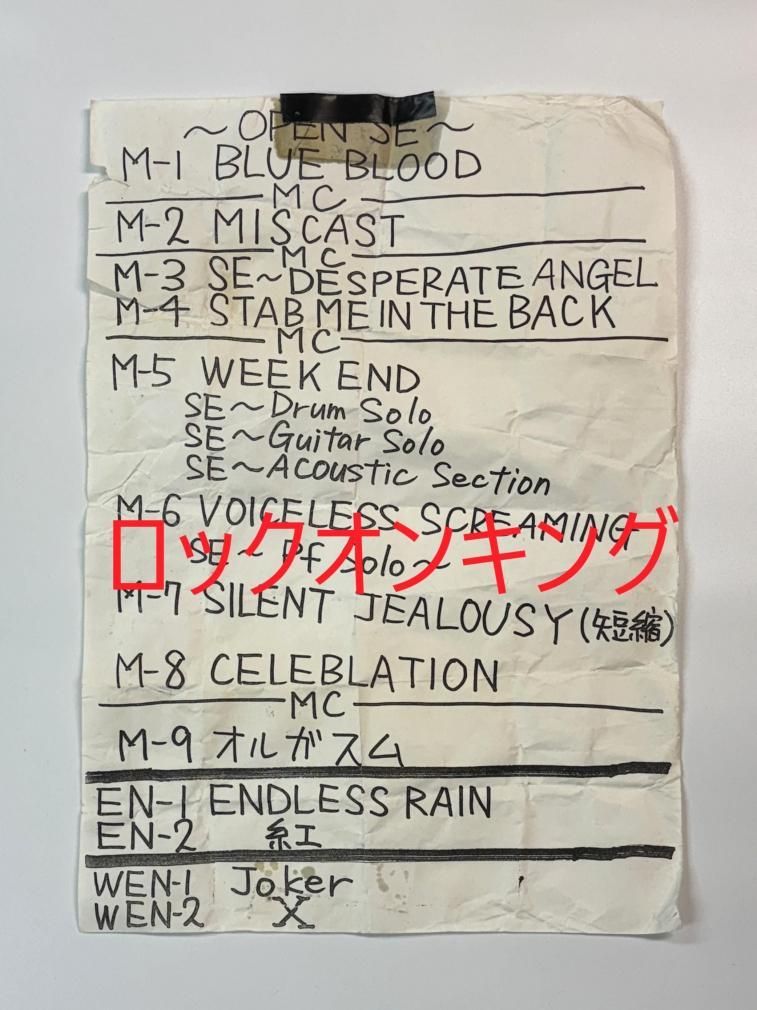 ～OPEN SE～
M-1 BLUE BLOOD
MC
M-2 MISCAST
MC
M-3 SE～DESPERATE ANGEL
M-4 STAB ME IN THE BACK
MC
M-5 WEEK END
SE～Drum Solo
SE～Guitar Solo
SE～Acoustic Section
M-6 VOICELESS SCREAMING
ロックオンキング
SE～Pf Solo～
M-7 SILENT JEALOUSY(短縮)
M-8 CELEBLATION
MC
M-9 オルガスム
EN-1 ENDLESS RAIN
EN-2 紅
WEN-1 Joker
WEN-2 X